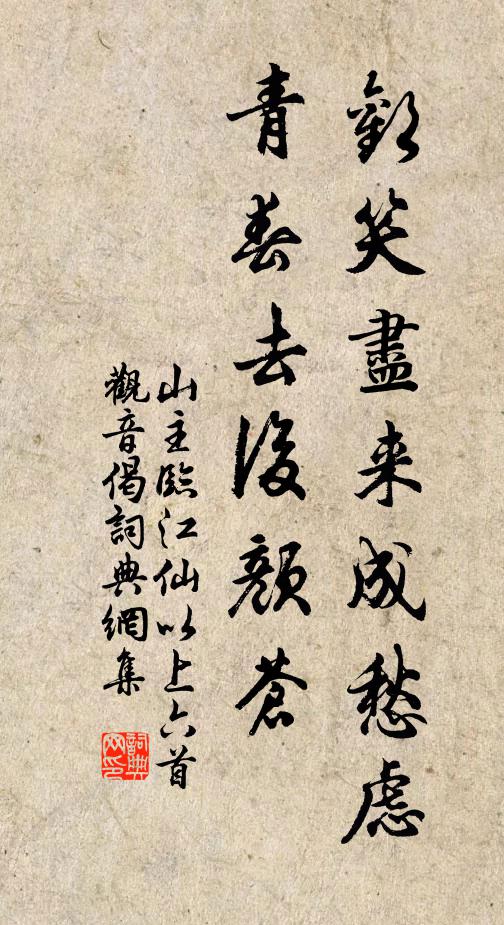 歡笑盡来成愁慮
青春去後顏蒼
山主臨江仙以上六首
觀音偈詞典網集
詞典网印